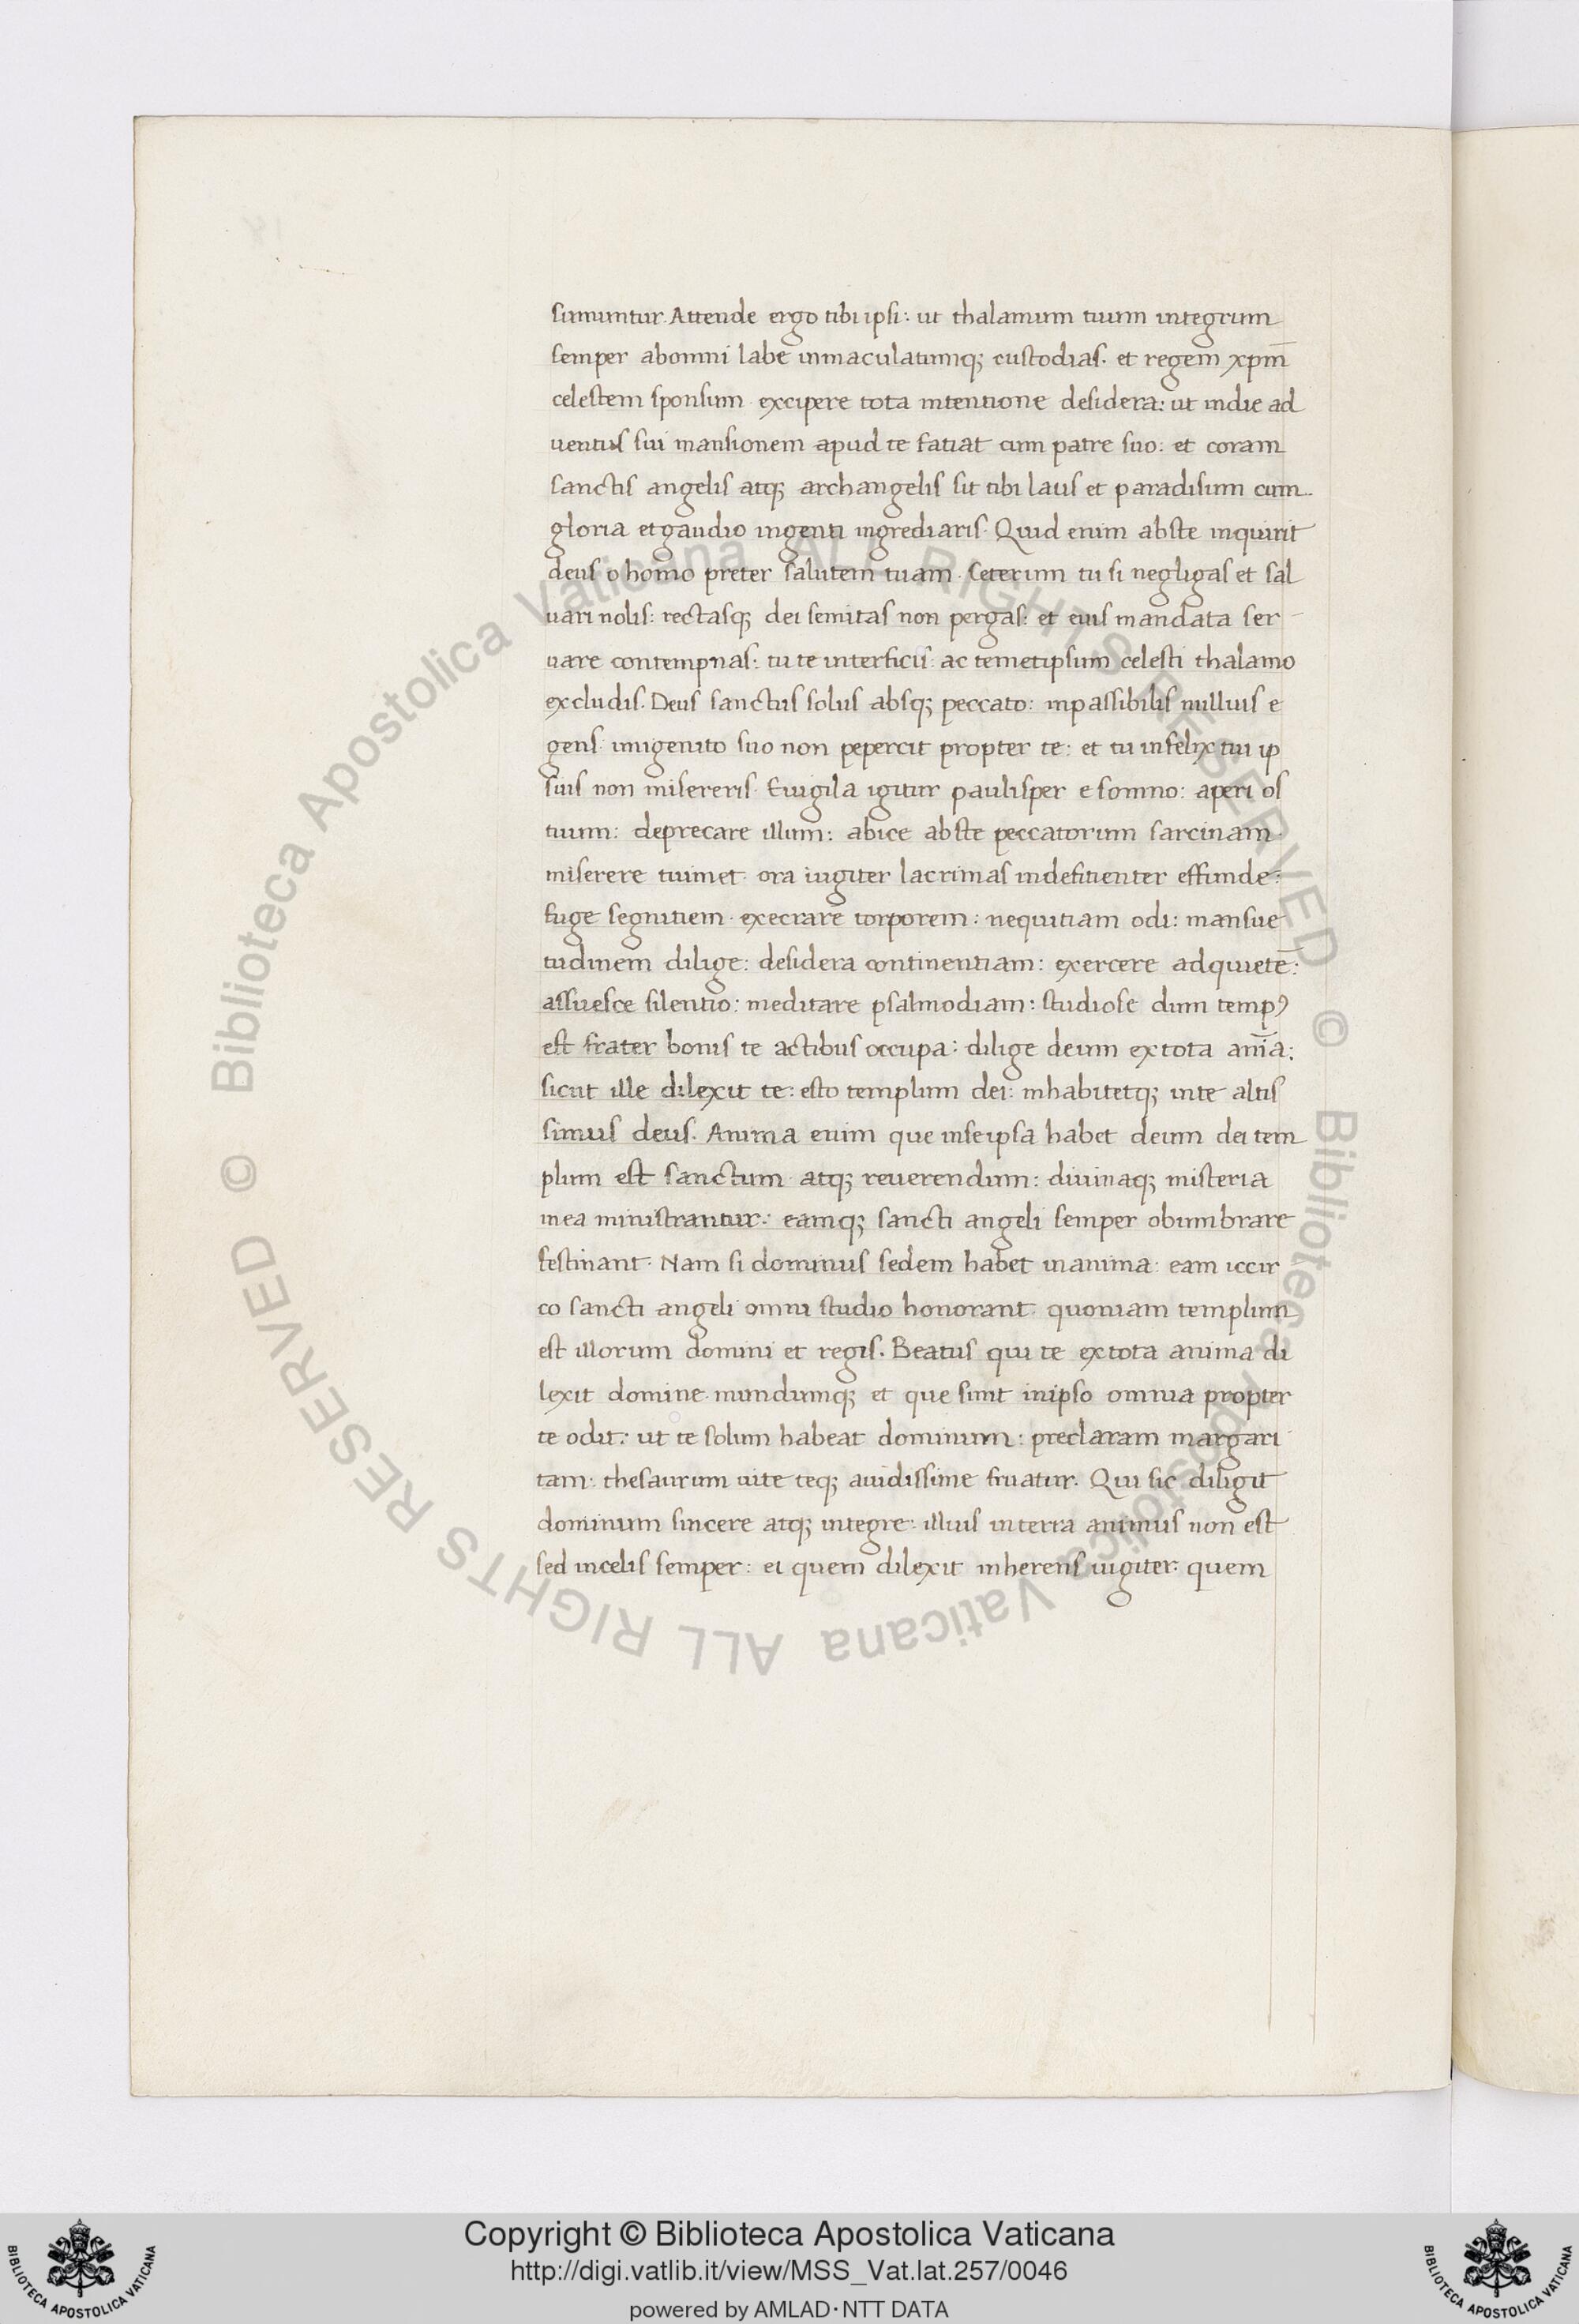 sumuntur. Attende ergo tibi ipsi: ut thalamum tuum integrum
semper abomni labe inmaculatumq; custodias. et regem xpm̄
celestem sponsum excipere tota intentione desidera: ut indie ad
uentus sui mansionem apud te fatiat cum patre suo: et coram
sanctis angelis atq; archangelis sit tibi laus et paradisum cum
gloria etgaudio ingenti ingrediaris. Quid enim abste inquirit
deus o homo preter salutem tuam. Ceterum tu si negligas et sal
uari nolis: rectasq; dei semitas non pergas: et eius mandata ser
uare contempnas: tu te interficis: ac temetipsum celesti thalamo
excludis. Deus sanctus solus absq; peccato: inpassibilis nullius e
gens unigenito suo non pepercit propter te: et tu infelix tui ip
sius non misereris. Euigila igitur paulisper e somno: aperi os
tuum: deprecare illum: abice abste peccatorum sarcinam.
miserere tuimet. ora iugiter lacrimas indefitienter effunde:
fuge segnitiem. execrare torporem: nequitiam odi: mansue
tudinem dilige: desidera continentiam: exercere adquietē:
assuesce silentio: meditare psalmodiam: studiose dum tempꝰ
est frater bonis te actibus occupa: dilige deum extota anīa:
sicut ille dilexit te: esto templum dei: inhabitetq; inte altis
simus deus. Anima enim que inseipsa habet deum dei tem
plum est sanctum atq; reuerendum: diuinaq; misteria
inea ministrantur: eamq; sancti angeli semper obumbrare
festinant. Nam si dominus sedem habet inanima: eam iccir
co sancti angeli omni studio honorant quoniam templum
est illorum domini et regis. Beatus qui te extota anima di
lexit domine mundumq; et que sunt inipso omnia propter
te odit: ut te solum habeat dominum: preclaram margari
tam: thesaurum uite teq; auidissime fruatur. Qui sic diligit
dominum sincere atq; integre: illius interra animus non est
sed incelis semper: ei quem dilexit inherens iugiter: quem
© Biblioteca Apostolica Vaticana ALL RIGHTS RESERVED
© Biblioteca Apostolica Vaticana ALL RIGHTS RESERVED
Copyright © Biblioteca Apostolica Vaticana
http://digi.vatlib.it/view/MSS_Vat.lat.257/0046
powered by AMLAD·NTT DATA
BIBLIOTECA APOSTOLICA VATICANA
BIBLIOTECA APOSTOLICA VATICANA